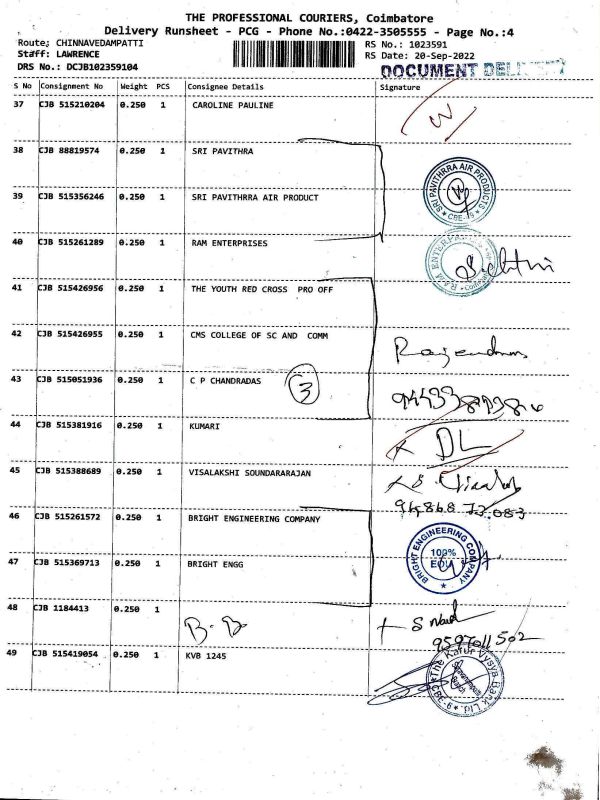 THE PROFESSIONAL COURIERS, Coimbatore
Delivery Runsheet - PCG - Phone No.:0422-3505555 - Page No.:4
Route; CHINNAVEDAMPATTI RS No.: 1023591
Staff: LAWRENCE RS Date: 20-Sep-2022
DRS No.: DCJB102359104 DOCUMENT DELIVERY
S No Consignment No Weight PCS Consignee Details Signature
37 CJB 515210204 0.250 1 CAROLINE PAULINE
38 CJB 88819574 0.250 1 SRI PAVITHRA
SRI PAVITHRRA AIR PRODUCTS CBE-19
39 CJB 515356246 0.250 1 SRI PAVITHRRA AIR PRODUCT
40 CJB 515261289 0.250 1 RAM ENTERPRISES
41 CJB 515426956 0.250 1 THE YOUTH RED CROSS PRO OFF
42 CJB 515426955 0.250 1 CMS COLLEGE OF SC AND COMM
43 CJB 515051936 0.250 1 C P CHANDRADAS 3
44 CJB 515381916 0.250 1 KUMARI DL
45 CJB 515388689 0.250 1 VISALAKSHI SOUNDARARAJAN
46 CJB 515261572 0.250 1 BRIGHT ENGINEERING COMPANY
BRIGHT ENGINEERING COMPANY 100% EOU
47 CJB 515369713 0.250 1 BRIGHT ENGG
48 CJB 1184413 0.250 1 B. B
9597011502
49 CJB 515419054 0.250 1 KVB 1245
The Karur Vysya Bank Ltd CBE-6